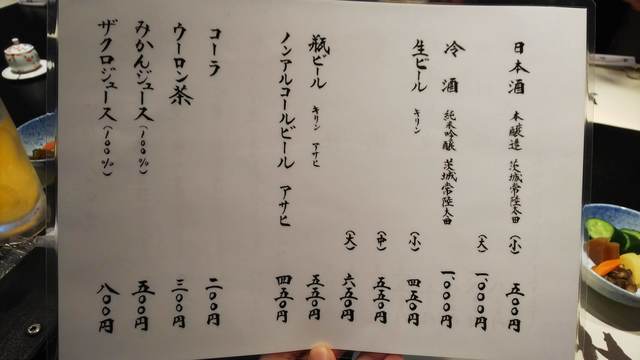 日本酒 本醸造 茨城常陸太田 (小) 五〇〇円
(大) 一、〇〇〇円
冷酒 純米吟醸 茨城常陸太田 一、〇〇〇円
生ビール キリン (小) 四五〇円
(中) 五五〇円
(大) 六五〇円
瓶ビール キリン アサヒ 五五〇円
ノンアルコールビール アサヒ 四五〇円
コーラ 二〇〇円
ウーロン茶 三〇〇円
みかんジュース(100%) 五〇〇円
ザクロジュース(100%) 八〇〇円